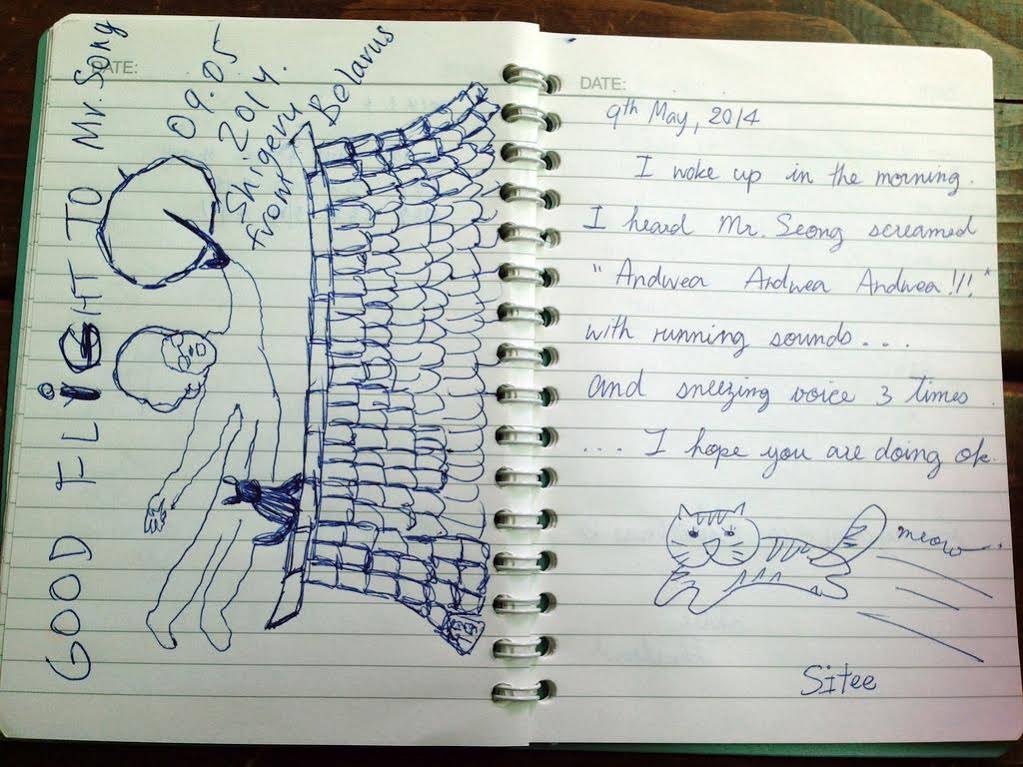 GOOD FLIGHT TO Mr. Song
DATE:
09.05
2014.
Shigeru
from
Belarus
DATE:
9th May, 2014
I woke up in the morning.
I heard Mr. Seong screamed
" Andwea Andwea Andwea!!!"
with running sounds....
and sneezing voice 3 times.
.... I hope you are doing ok.
meow
Sitee